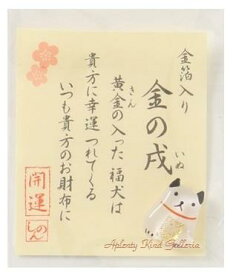 金箔入り
金の戌
いぬ
黄金の入った福犬は
きん
貴方に幸運つれてくる
いつも貴方のお財布に
開運
しのん
Aplenty Kind Galleria